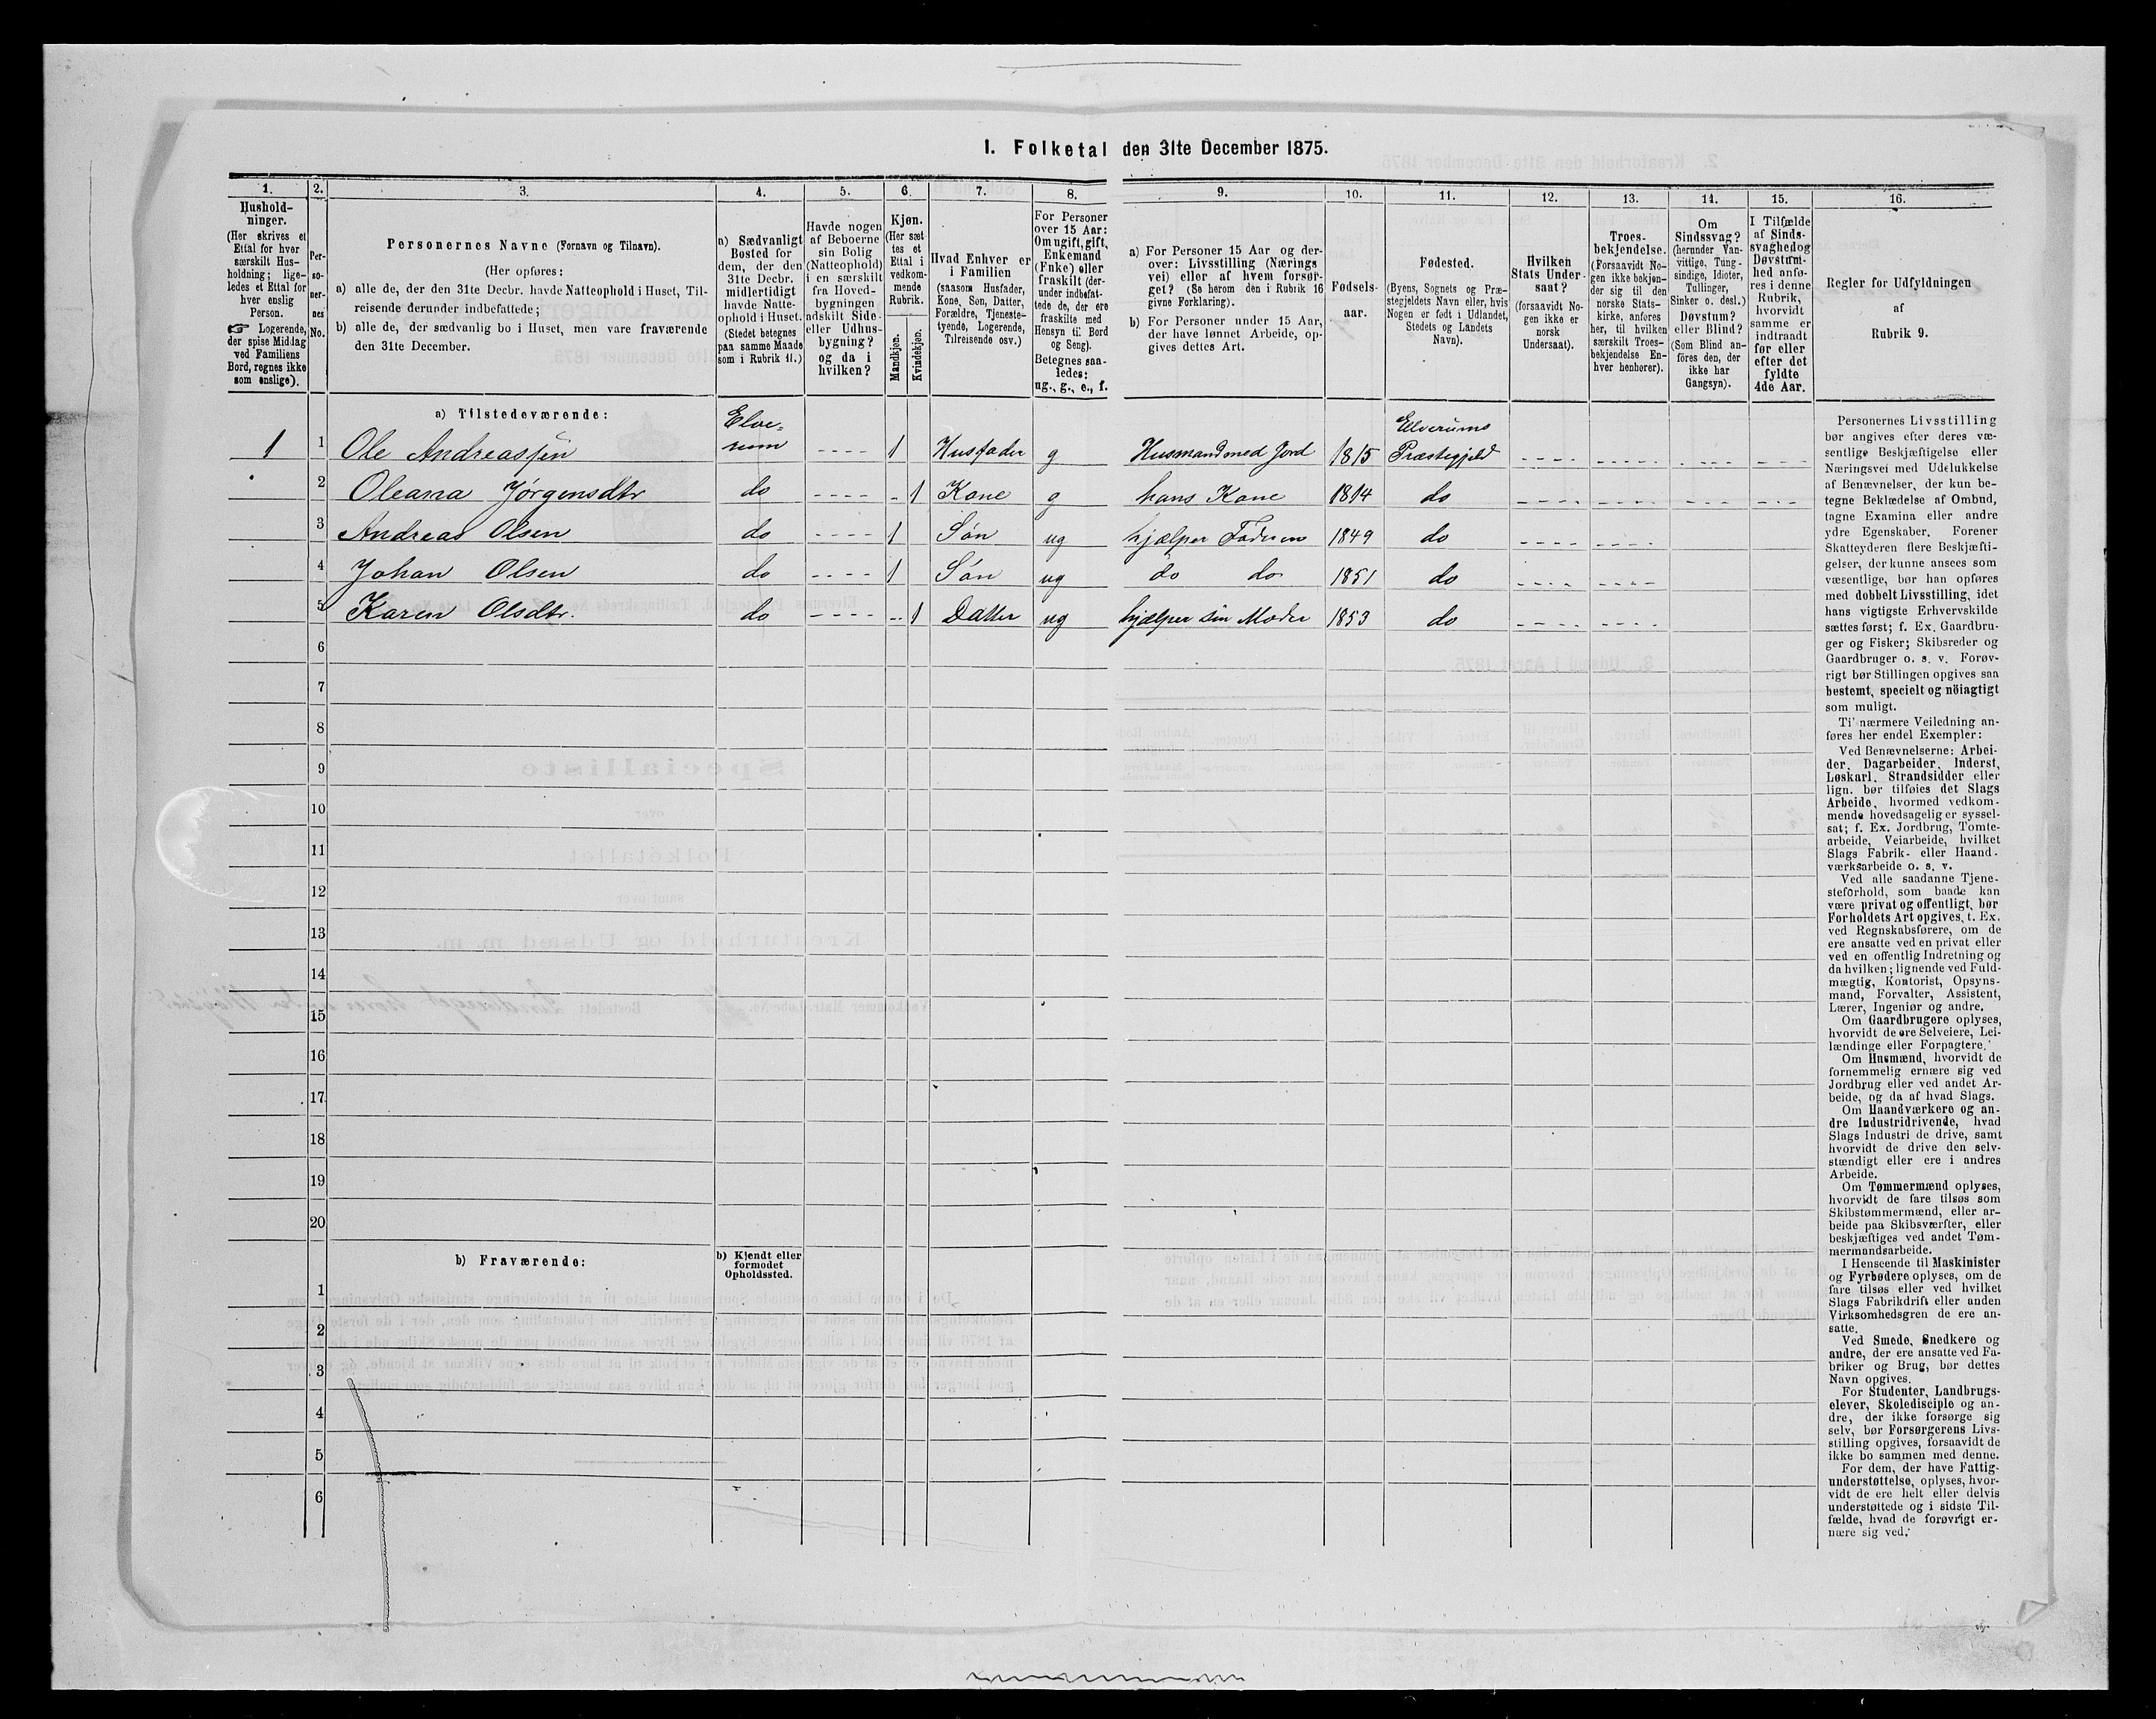 I. Folketal den 31te December 1875.
1.
Hushold-
ninger.
(Her skrives et
Ettal for hver
særskilt Hus-
holdning; lige-
ledes et Ettal for
hver enslig
Person.
☞ Logerende,
der spise Middag
ved Familiens
Bord, regnes ikke
som enslige).
2.
Per-
so-
ner-
nes
No.
3.
Personernes Navne (Fornavn og Tilnavn).
(Her opføres:
a) alle de, der den 31te Decbr. havde Natteophold i Huset, Til-
reisende derunder indbefattede;
b) alle de, der sædvanlig bo i Huset, men vare fraværende
den 31te December.
4.
a) Sædvanligt
Bosted for
dem, der den
31te Decbr.
midlertidigt
havde Natte-
ophold i Huset.
(Stedet betegnes
paa samme Maade
som i Rubrik 11.)
5.
Havde nogen
af Beboerne
sin Bolig
(Natteophold)
i en særskilt
fra Hoved-
bygningen
adskilt Side-
eller Udhus-
bygning?
og da i
hvilken?
6.
Kjøn.
(Her sæt
tes et
Ettal i
vedkom-
mende
Rubrik.
Mandkjøn.
Kvindekjøn.
7.
Hvad Enhver er
i Familien
(saasom Husfader,
Kone, Søn, Datter,
Forældre, Tjeneste-
tyende, Logerende,
Tilreisende osv.)
8.
For Personer
over 15 Aar:
Om ugift, gift,
Enkemand
(Enke) eller
fraskilt (der-
under indbefat-
tede de, der ere
fraskilte med
Hensyn til Bord
og Seng).
Betegnes saa-
ledes:
ug., g., e., f.
9.
a) For Personer 15 Aar og der-
over: Livsstilling (Nærings
vei) eller af hvem forsør-
get? (Se herom den i Rubrik 16
givne Forklaring).
b) For Personer under 15 Aar,
der have lønnet Arbeide, op-
gives dettes Art.
10.
Fødsels-
aar.
11.
Fødested.
(Byens, Sognets og Præ-
stegjeldets Navn eller, hvis
Nogen er født i Udlandet,
Stedets og Landets
Navn).
12.
Hvilken
Stats Under-
saat?
(forsaavidt No-
gen ikke er
norsk
Undersaat).
13.
Troes-
bekjendelse.
(Forsaavidt No-
gen ikke bekjen-
der sig til den
norske Stats-
kirke, anføres
her, til hvilken
særskilt Troes-
bekjendelse En-
hver henhører).
14.
Om
Sindssvag?
(herunder Van-
vittige, Tung-
sindige, Idioter,
Tullinger,
Sinker o. desl.)
Døvstum?
eller Blind?
(Som Blind an-
føres den, der
ikke har
Gangsyn).
15.
I Tilfælde
af Sinds-
svaghedog
Døvstum-
hed anfø-
res i denne
Rubrik,
hvorvidt
samme er
indtraadt
før eller
efter det
fyldte
4de Aar.
16.
Regler for Udfyldningen
af
Rubrik 9.
a) Tilstedeværende:
1 1 Ole Andreassen Elve=rum ---- 1 Husfader g Husmand med Jord 1815 Elverums Præstegjeld ---- ---- ---- ----
2 Oleana Jørgensdtr do ---- - 1 Kone g hans Kone 1814 do ---- ---- ---- ----
3 Andreas Olsen do ---- 1 Søn ug hjælper Faderen 1849 do ---- ----
4 Johan Olsen do ---- 1 Søn ug do do 1851 do ---- ----
5 Karen Olsdtr. do ---- -- 1 Datter ug hjælper sin Moder 1853 do ---- ----
6
7
8
9
10
11
12
13
14
15
16
17
18
19
20
b) Fraværende:
b) Kjendt eller
formodet
Opholdssted.
1
2
3
4
5
6
Personernes Livsstilling
bør angives efter deres væ-
sentlige Beskjæftigelse eller
Næringsvei med Udelukkelse
af Benævnelser, der kun be-
tegne Beklædelse af Ombud,
tagne Examina eller andre
ydre Egenskaber. Forener
Skatteyderen flere Beskjæfti-
gelser, der kunne ansees som
væsentlige, bør han opføres
med dobbelt Livsstilling, idet
hans vigtigste Erhvervskilde
sættes først; f. Ex. Gaardbru-
ger og Fisker; Skibsreder og
Gaardbruger o. s. v. Forøv-
rigt bør Stillingen opgives saa
bestemt, specielt og nöiagtigt
som muligt.
Ti' nærmere Veiledning an-
føres her endel Exempler:
Ved Benævnelserne: Arbei-
der, Dagarbeider, Inderst,
Løskarl, Strandsidder eller
lign. bør tilføies det Slags
Arbeide, hvormed vedkom-
mende hovedsagelig er syssel-
sat; f. Ex. Jordbrug, Tomte-
arbeide, Veiarbeide, hvilket
Slags Fabrik- eller Haand-
værksarbeide o. s. v.
Ved alle saadanne Tjene-
steforhold, som baade kan
være privat og offentligt, bør
Forholdets Art opgives, t. Ex.
ved Regnskabsførere, om de
ere ansatte ved en privat eller
ved en offentlig Indretning og
da hvilken; lignende ved Fuld-
mægtig, Kontorist, Opsyns-
mand, Forvalter, Assistent,
Lærer, Ingeniør og andre.
Om Gaardbrugere oplyses,
hvorvidt de ere Selveiere, Lei-
lændinge eller Forpagtere.
Om Husmænd, hvorvidt de
fornemmelig ernære sig ved
Jordbrug eller ved andet Ar-
beide, og da af hvad Slags.
Om Haandværkere og an-
dre Industridrivende, hvad
Slags Industri de drive, samt
hvorvidt de drive den selv-
stændigt eller ere i andres
Arbeide.
Om Tømmermænd oplyses,
hvorvidt de fare tilsøs som
Skibstømmermænd, eller ar-
beide paa Skibsværfter, eller
beskjæftiges ved andet Tøm-
mermandsarbeide.
I Henseende til Maskinister
og Fyrbødere oplyses, om de
fare tilsøs eller ved hvilket
Slags Fabrikdrift eller anden
Virksomhedsgren de ere an-
satte.
Ved Smede, Snedkere og
andre, der ere ansatte ved Fa-
briker og Brug, bør dettes
Navn opgives.
For Studenter, Landbrugs-
elever, Skoledisciple og an-
dre, der ikke forsørge sig
selv, bør Forsørgerens Livs-
stilling opgives, forsaavidt de
ikke bo sammen med denne.
For dem, der have Fattig-
understøttelse, oplyses, hvor-
vidt de ere helt eller delvis
understøttede og i sidste Til-
fælde, hvad de forøvrigt er-
nære sig ved.